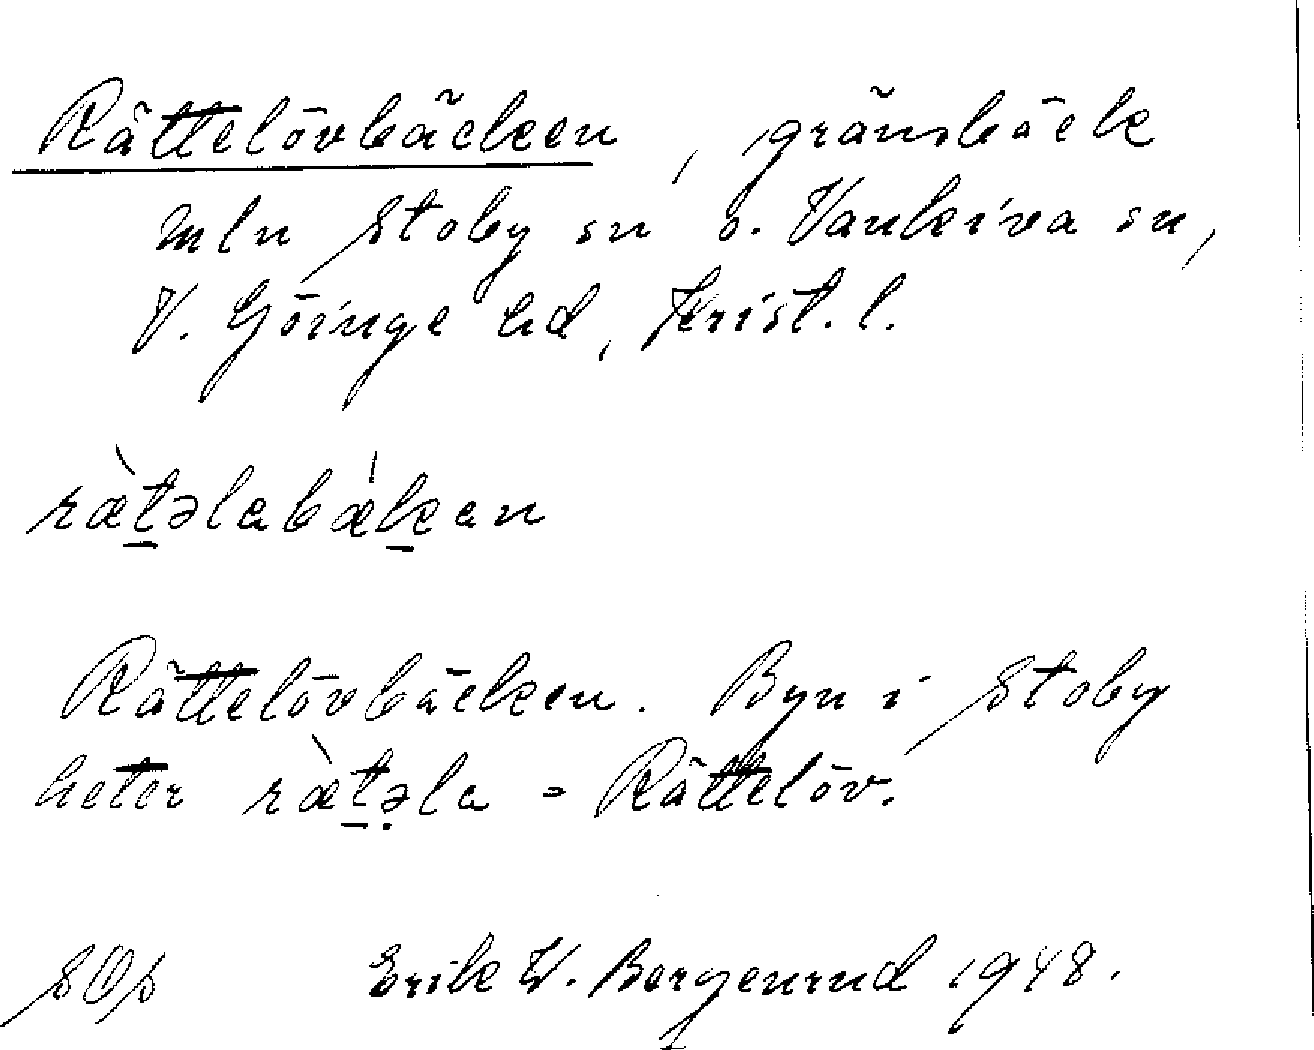 Rättelövbäcken, gränsbäck
mln Stoby sn o. Vankiva sn,
V. Göinge hd, Krist. l.
ræ̀t̲əlabæ̍k̲an
Rättelövbäcken. Byn i Stoby
heter ræ̀t̲ə̣la = Rättelöv.
SOS Erik W. Bergenrud 1948.